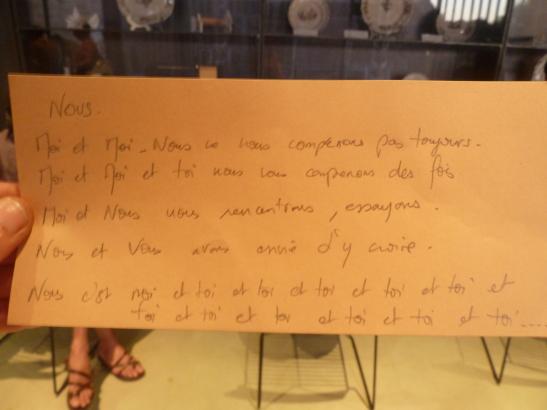 Nous.
Moi et Moi. Nous ne nous comprenons pas toujours.
Moi et Moi et toi nous nous comprenons des fois
Moi et Nous nous rencontrons, essayons.
Nous et Vous avons envie d'y croire.
Nous c'est moi et toi et toi et toi et toi et toi et
toi et toi et toi et toi et toi et toi.....